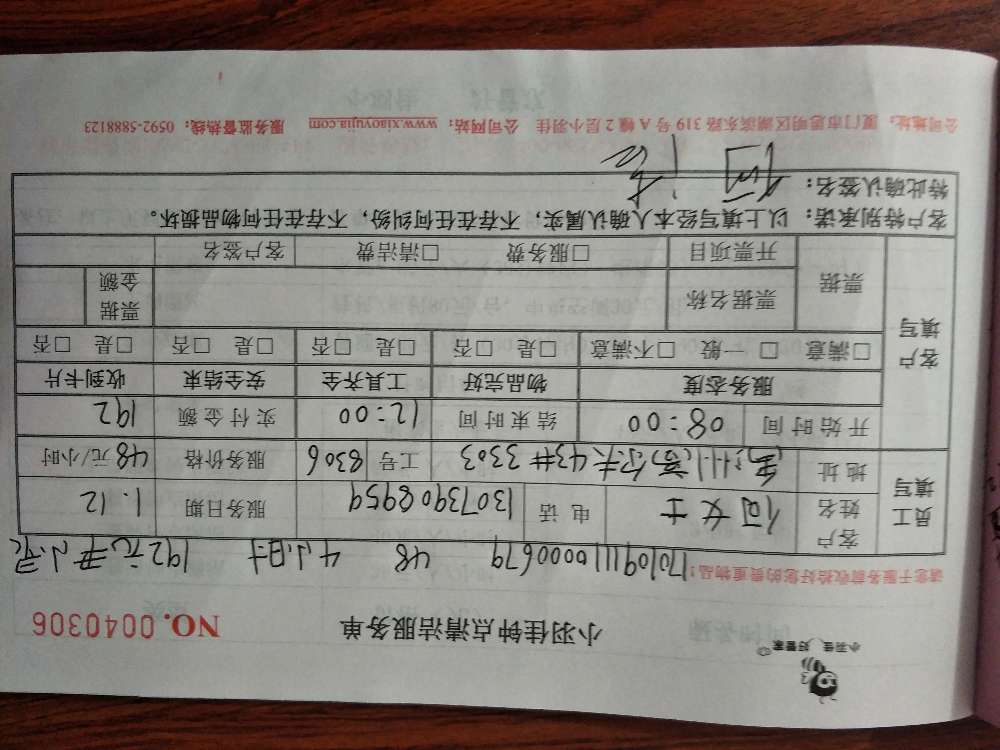 小羽佳 好管家
小羽佳钟点清洁服务单 NO. 0040306
请您于服务前收拾好您的贵重物品: 1701091110000679 48 4小时 192元
员工填写 客户姓名 何女士 电话 13073908959 服务日期 1.12
地址 高尔夫43#3303 工号 8306 服务价格 48元/小时
客户填写 开始时间 08:00 结束时间 12:00 实付金额 192
服务态度 物品完好 工具齐全 安全结束 收到卡片
□满意 □一般 □不满意 □是 □否 □是 □否 □是 □否 □是 □否
票据 票据名称 票据金额
开票项目 □服务费 □清洁费 客户签名
客户特别承诺: 以上填写经本人确认属实, 不存在任何纠纷, 不存在任何物品损坏。
特此确认签名: 何
公司地址: 厦门市思明区湖滨东路 319 号 A 幢 2 层小羽佳 公司网站: www.xiaoyujia.com 服务监督热线: 0592-5888123